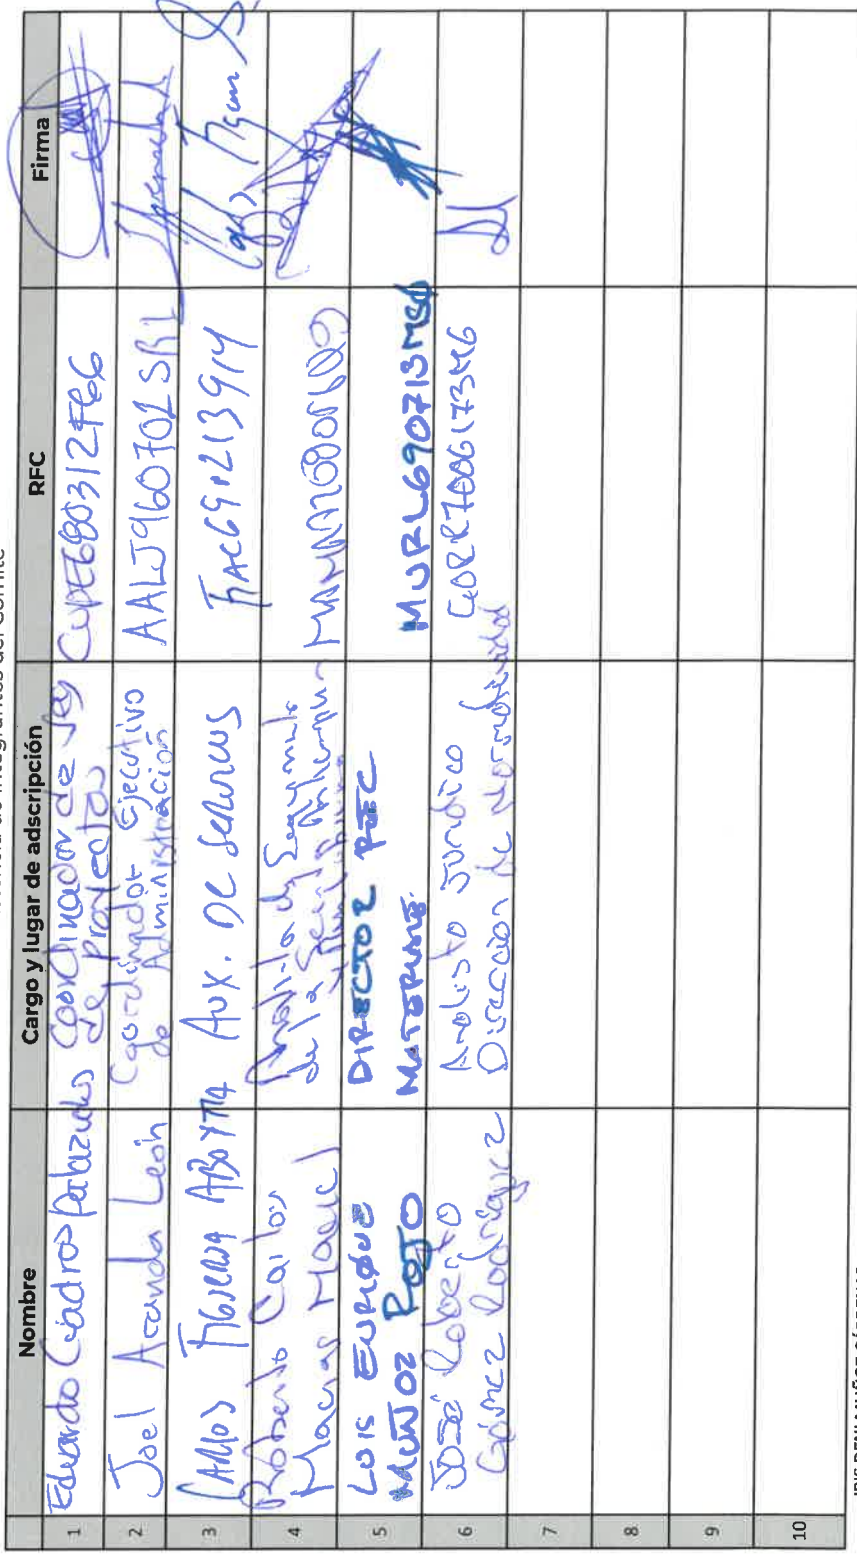 integrantes del Comité
Nombre Cargo y lugar de adscripción RFC Firma
1 Eduardo Cuadros Palazuelos Coordinador de Seg de Proyectos CUPE680312F66
2 Joel Aranda León Coordinador Ejecutivo de Administración AALJ960702SR1
3 Carlos Figueroa Aux. DE Servicios
4 Roberto Carlos Macías Maciel Analista de Seguimiento de la
5 LUIS ENRIQUE MUÑOZ ROJO DIRECTOR REC MATERIALES. MURL690713MS6
6 José Roberto Gómez Rodríguez Analista Jurídico Dirección de Normatividad GORR7006173M6
7
8
9
10